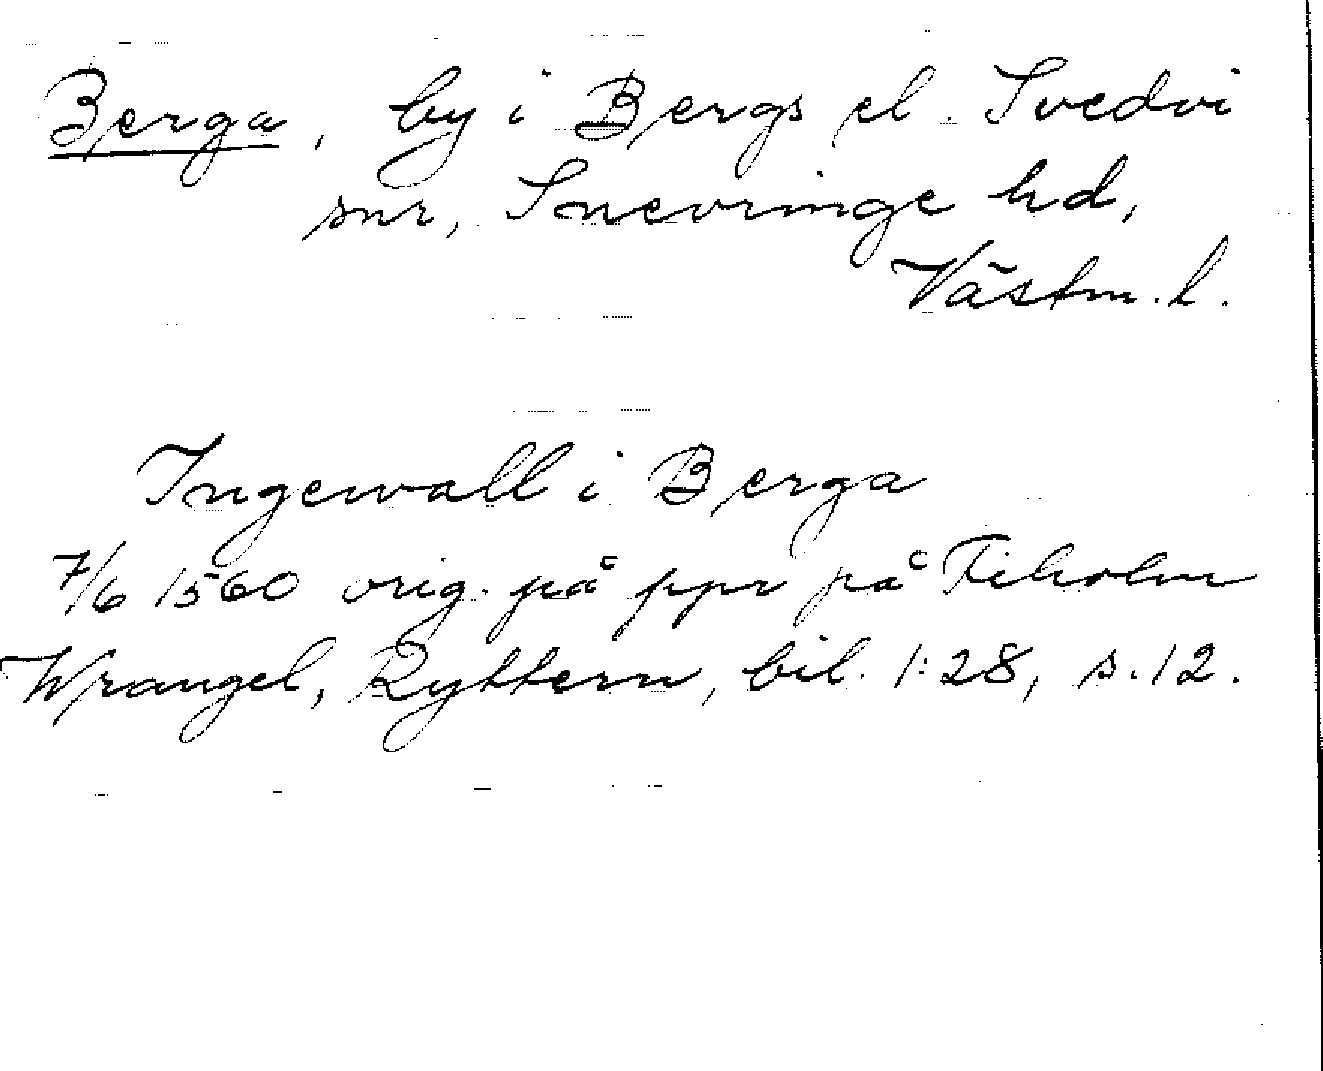 Berga, by i Bergs el. Svedvi
snr, Snevringe hd,
Västm. l.
Ingewall i Berga
7/6 1560 orig. på ppr på Fiholm
Wrangel, Ryttern, bil. 1:28, s. 12.